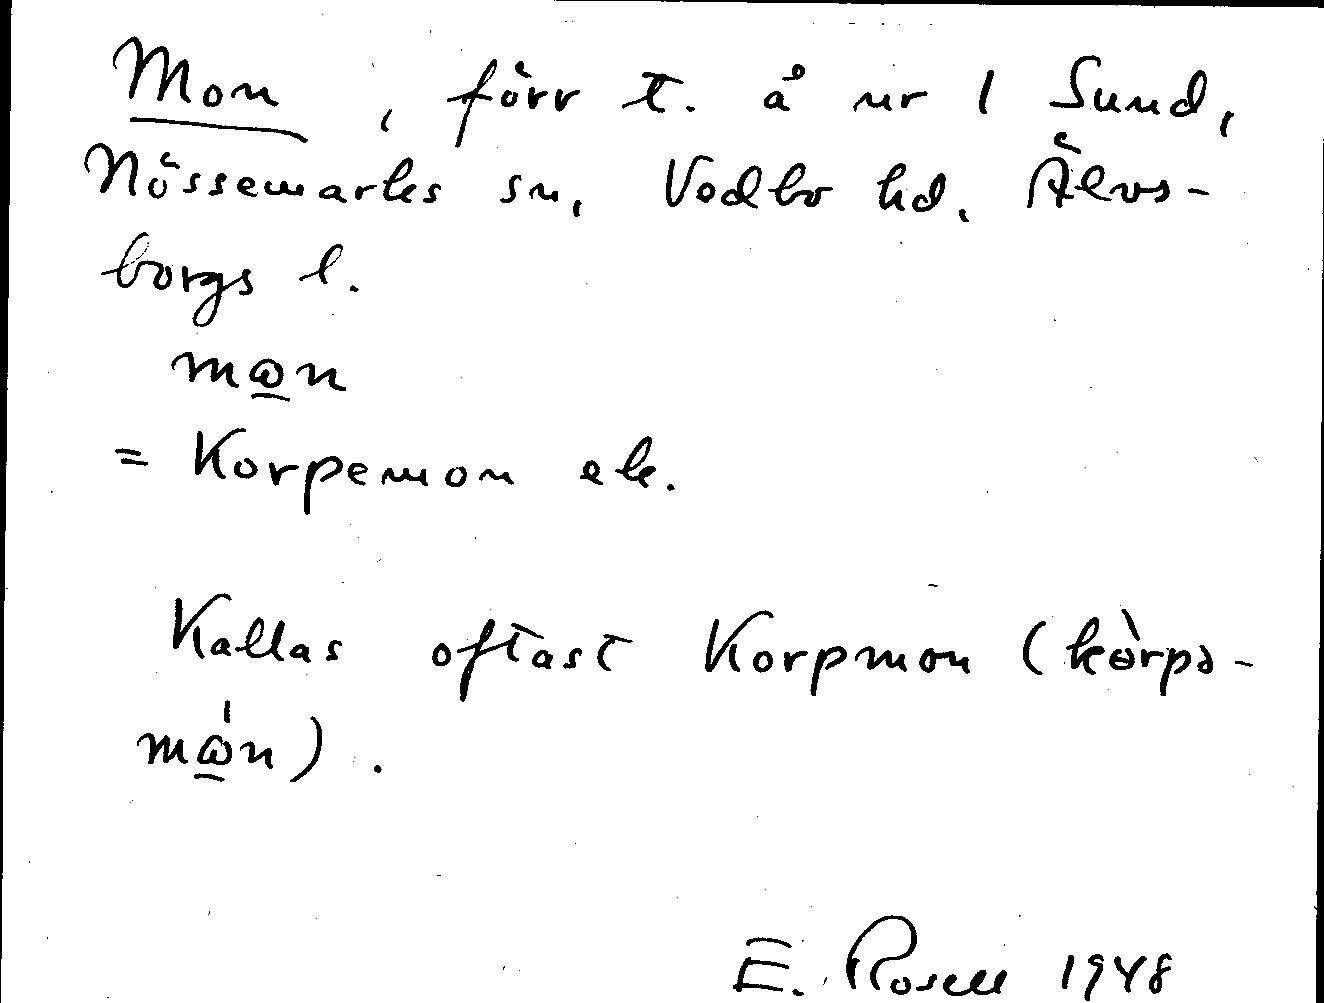 Mon, förr t. å nr 1 Sund,
Nössemarks sn, Vedbo hd. Älvs-
borgs l.
mωn
= Korpemon ek.
Kallas oftast Korpmon (kòrpə-
mω̍n).
E. Rosell 1948